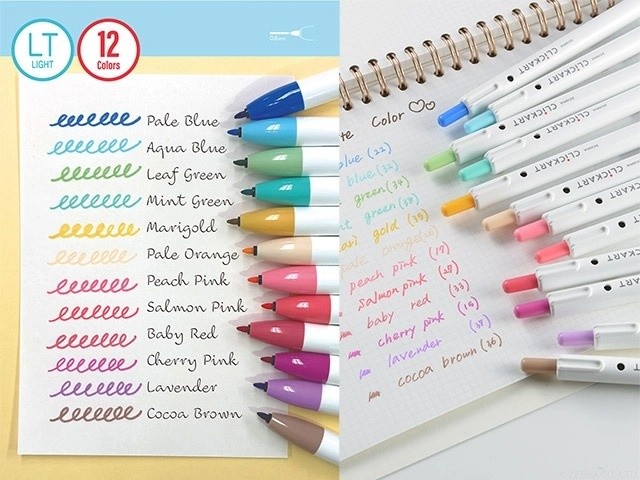 LT
LIGHT
12
Colors
0.6mm
Pale Blue
Aqua Blue
Leaf Green
Mint Green
Marigold
Pale Orange
Peach Pink
Salmon Pink
Baby Red
Cherry Pink
Lavender
Cocoa Brown
Color
blue (22)
blue (32)
green (34)
green (38)
gold (39)
pale orange
peach pink (17)
Salmon pink (27)
baby red (33)
cherry pink (18)
lavender (37)
cocoa brown (36)
CLiCKART
CLiCKART
CLiCKART
CLiCKART
CLiCKART
CLiCKART